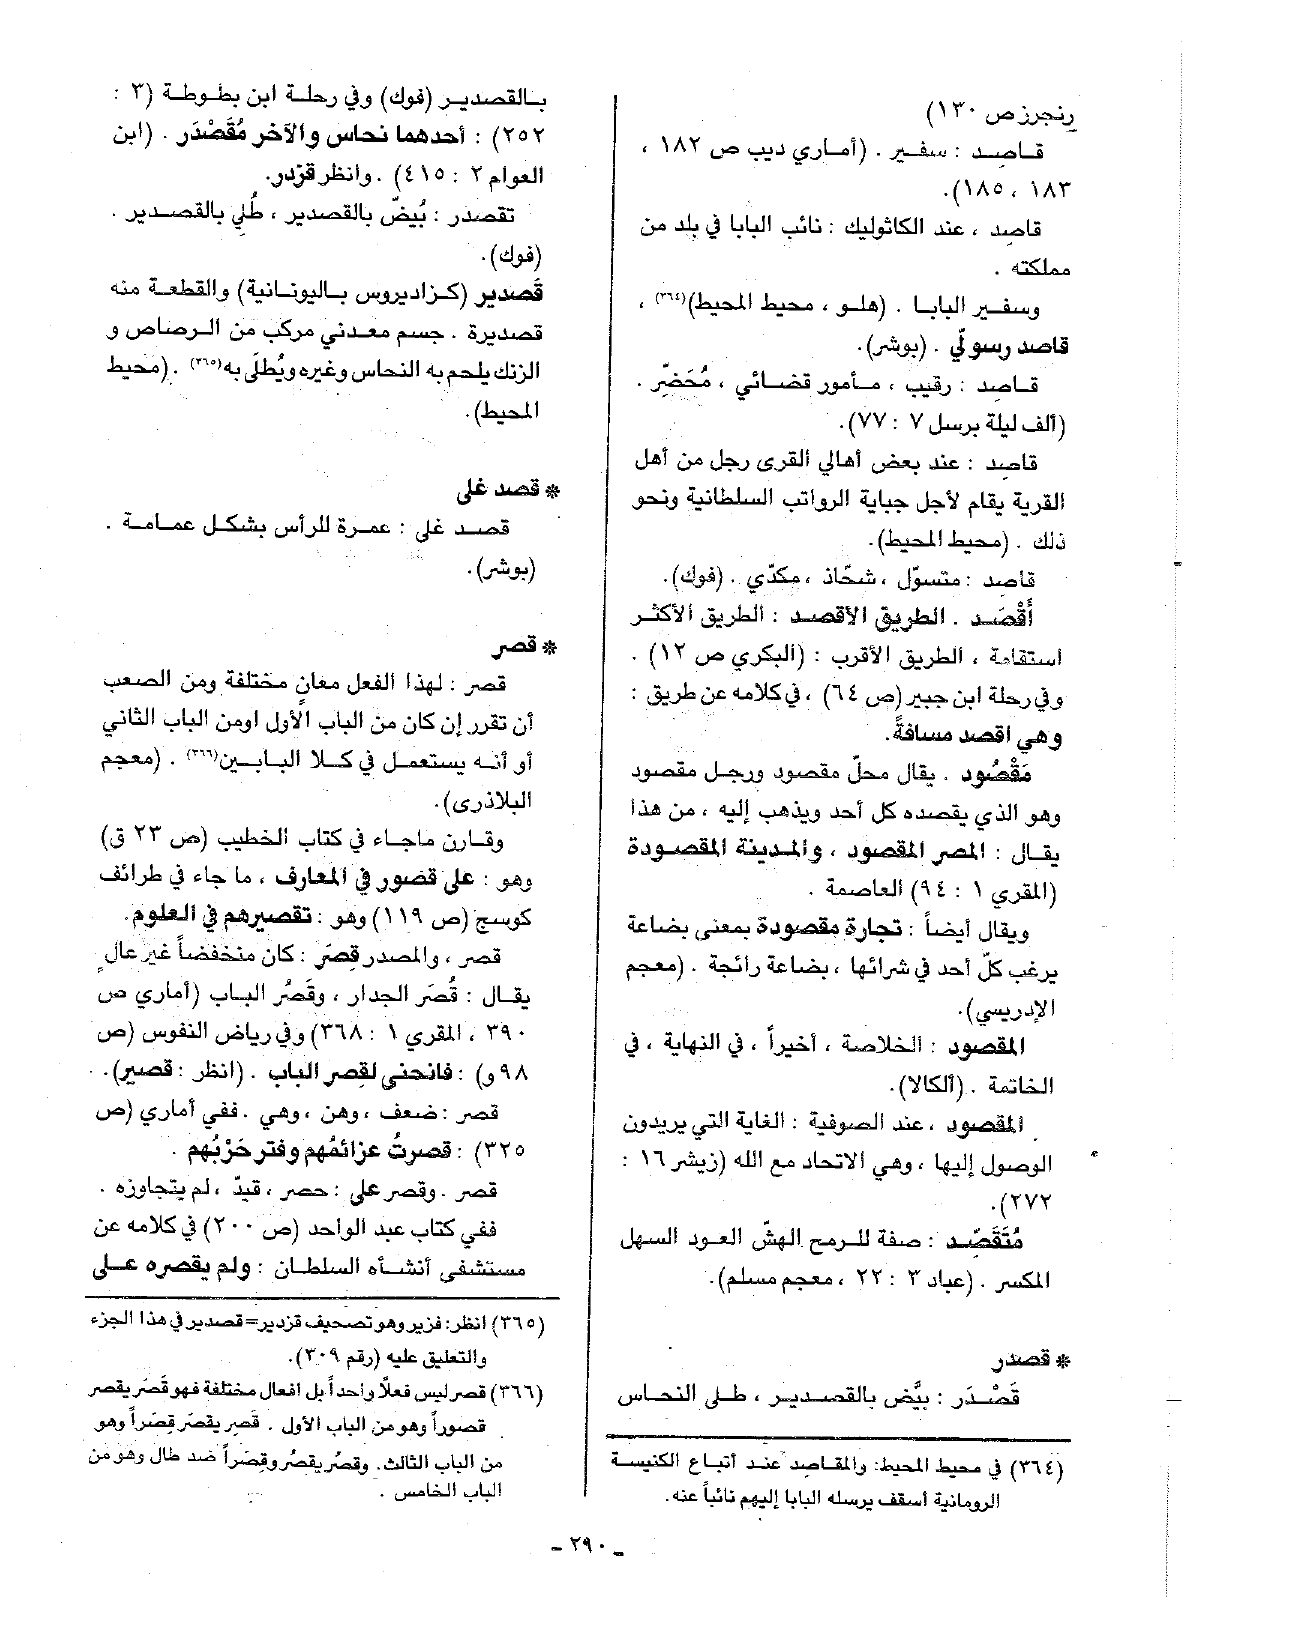 رنجرز ص ١٣٠)
قاصد : سفير . (أماري ديب ص ١٨٢ ،
١٨٣ ، ١٨٥).
قاصد ، عند الكاثوليك : نائب البابا في بلد من
مملكته .
وسفير البابا . (هلو ، محيط المحيط)(٣٦٤) ،
قاصد رسولي . (بوشر).
قاصد : رقيب ، مأمور قضائي ، مُحَضِّر .
(ألف ليلة برسل ٧ : ٧٧).
قاصد : عند بعض أهالي القرى رجل من أهل
القرية يقام لأجل جباية الرواتب السلطانية ونحو
ذلك . (محيط المحيط).
قاصد : متسوّل ، شحّاذ ، مكدّي . (فوك).
أَقْصَد . الطريق الأقصد : الطريق الأكثر
استقامة ، الطريق الأقرب : (البكري ص ١٢) .
وفي رحلة ابن جبير (ص ٦٤) ، في كلامه عن طريق :
وهي اقصد مسافةً.
مَقْصُود . يقال محلّ مقصود ورجل مقصود
وهو الذي يقصده كل أحد ويذهب إليه ، من هذا
يقال : المصر المقصود ، والمدينة المقصودة
(المقري ١ : ٩٤) العاصمة .
ويقال أيضاً : تجارة مقصودة بمعنى بضاعة
يرغب كلّ أحد في شرائها ، بضاعة رائجة . (معجم
الإدريسي).
المقصود : الخلاصة ، أخيراً ، في النهاية ، في
الخاتمة . (ألكالا).
المقصود ، عند الصوفية : الغاية التي يريدون
الوصول إليها ، وهي الاتحاد مع الله (زيشر ١٦ :
٢٧٢).
مُتَقَصِّد : صفة للرمح الهشّ العود السهل
المكسر . (عباد ٣ : ٢٢ ، معجم مسلم).
* قصدر
قَصْدَر : بيَّض بالقصدير ، طلى النحاس
(٣٦٤) في محيط المحيط: والمقاصد عند أتباع الكنيسة
الرومانية أسقف يرسله البابا إليهم نائباً عنه.
بالقصدير (فوك) وفي رحلة ابن بطوطة (٣ :
٢٥٢) : أحدهما نحاس والآخر مُقَصْدَر . (ابن
العوام ٢ : ٤١٥) . وانظر قزدر.
تقصدر : بُيضّ بالقصدير ، طُلي بالقصدير .
(فوك).
قَصدير (كزاديروس باليونانية) والقطعة منه
قصديرة . جسم معدني مركب من الرصاص و
الزنك يلحم به النحاس وغيره ويُطلَى به(٣٦٥) . (محيط
المحيط).
* قصد غلى
قصد غلى : عمرة للرأس بشكل عمامة .
(بوشر).
* قصر
قصر : لهذا الفعل معانٍ مختلفة ومن الصعب
أن تقرر إن كان من الباب الأول اومن الباب الثاني
أو أنه يستعمل في كلا البابين(٣٦٦) . (معجم
البلاذري).
وقارن ماجاء في كتاب الخطيب (ص ٢٣ ق)
وهو : على قصور في المعارف ، ما جاء في طرائف
كوسج (ص ١١٩) وهو : تقصيرهم في العلوم.
قصر ، والمصدر قصَر : كان منخفضاً غير عالٍ
يقال : قُصَر الجدار ، وقَصُر الباب (أماري ص
٣٩٠ ، المقري ١ : ٣٦٨) وفي رياض النفوس (ص
٩٨ و) : فانحنى لقصر الباب . (انظر : قصير).
قصر : ضعف ، وهن ، وهي . ففي أماري (ص
٣٢٥) : قصرتُ عزائمُهم وفتر حَزْبُهم .
قصر . وقصر على : حصر ، قيدّ ، لم يتجاوزه .
ففي كتاب عبد الواحد (ص ٢٠٠) في كلامه عن
مستشفى أنشأه السلطان : ولم يقصره على
(٣٦٥) انظر: فزير وهو تصحيف قزدير= قصدير في هذا الجزء
والتعليق عليه (رقم ٣٠٩).
(٣٦٦) قصر ليس فعلاً واحداً بل افعال مختلفة فهو قَصَر يقصر
قصوراً وهو من الباب الأول . قَصِر يقصَر قِصَراً وهو
من الباب الثالث. وقصُر يقصُر وقِصَراً ضد طال وهو من
الباب الخامس .
ـ ٢٩٠ ـ